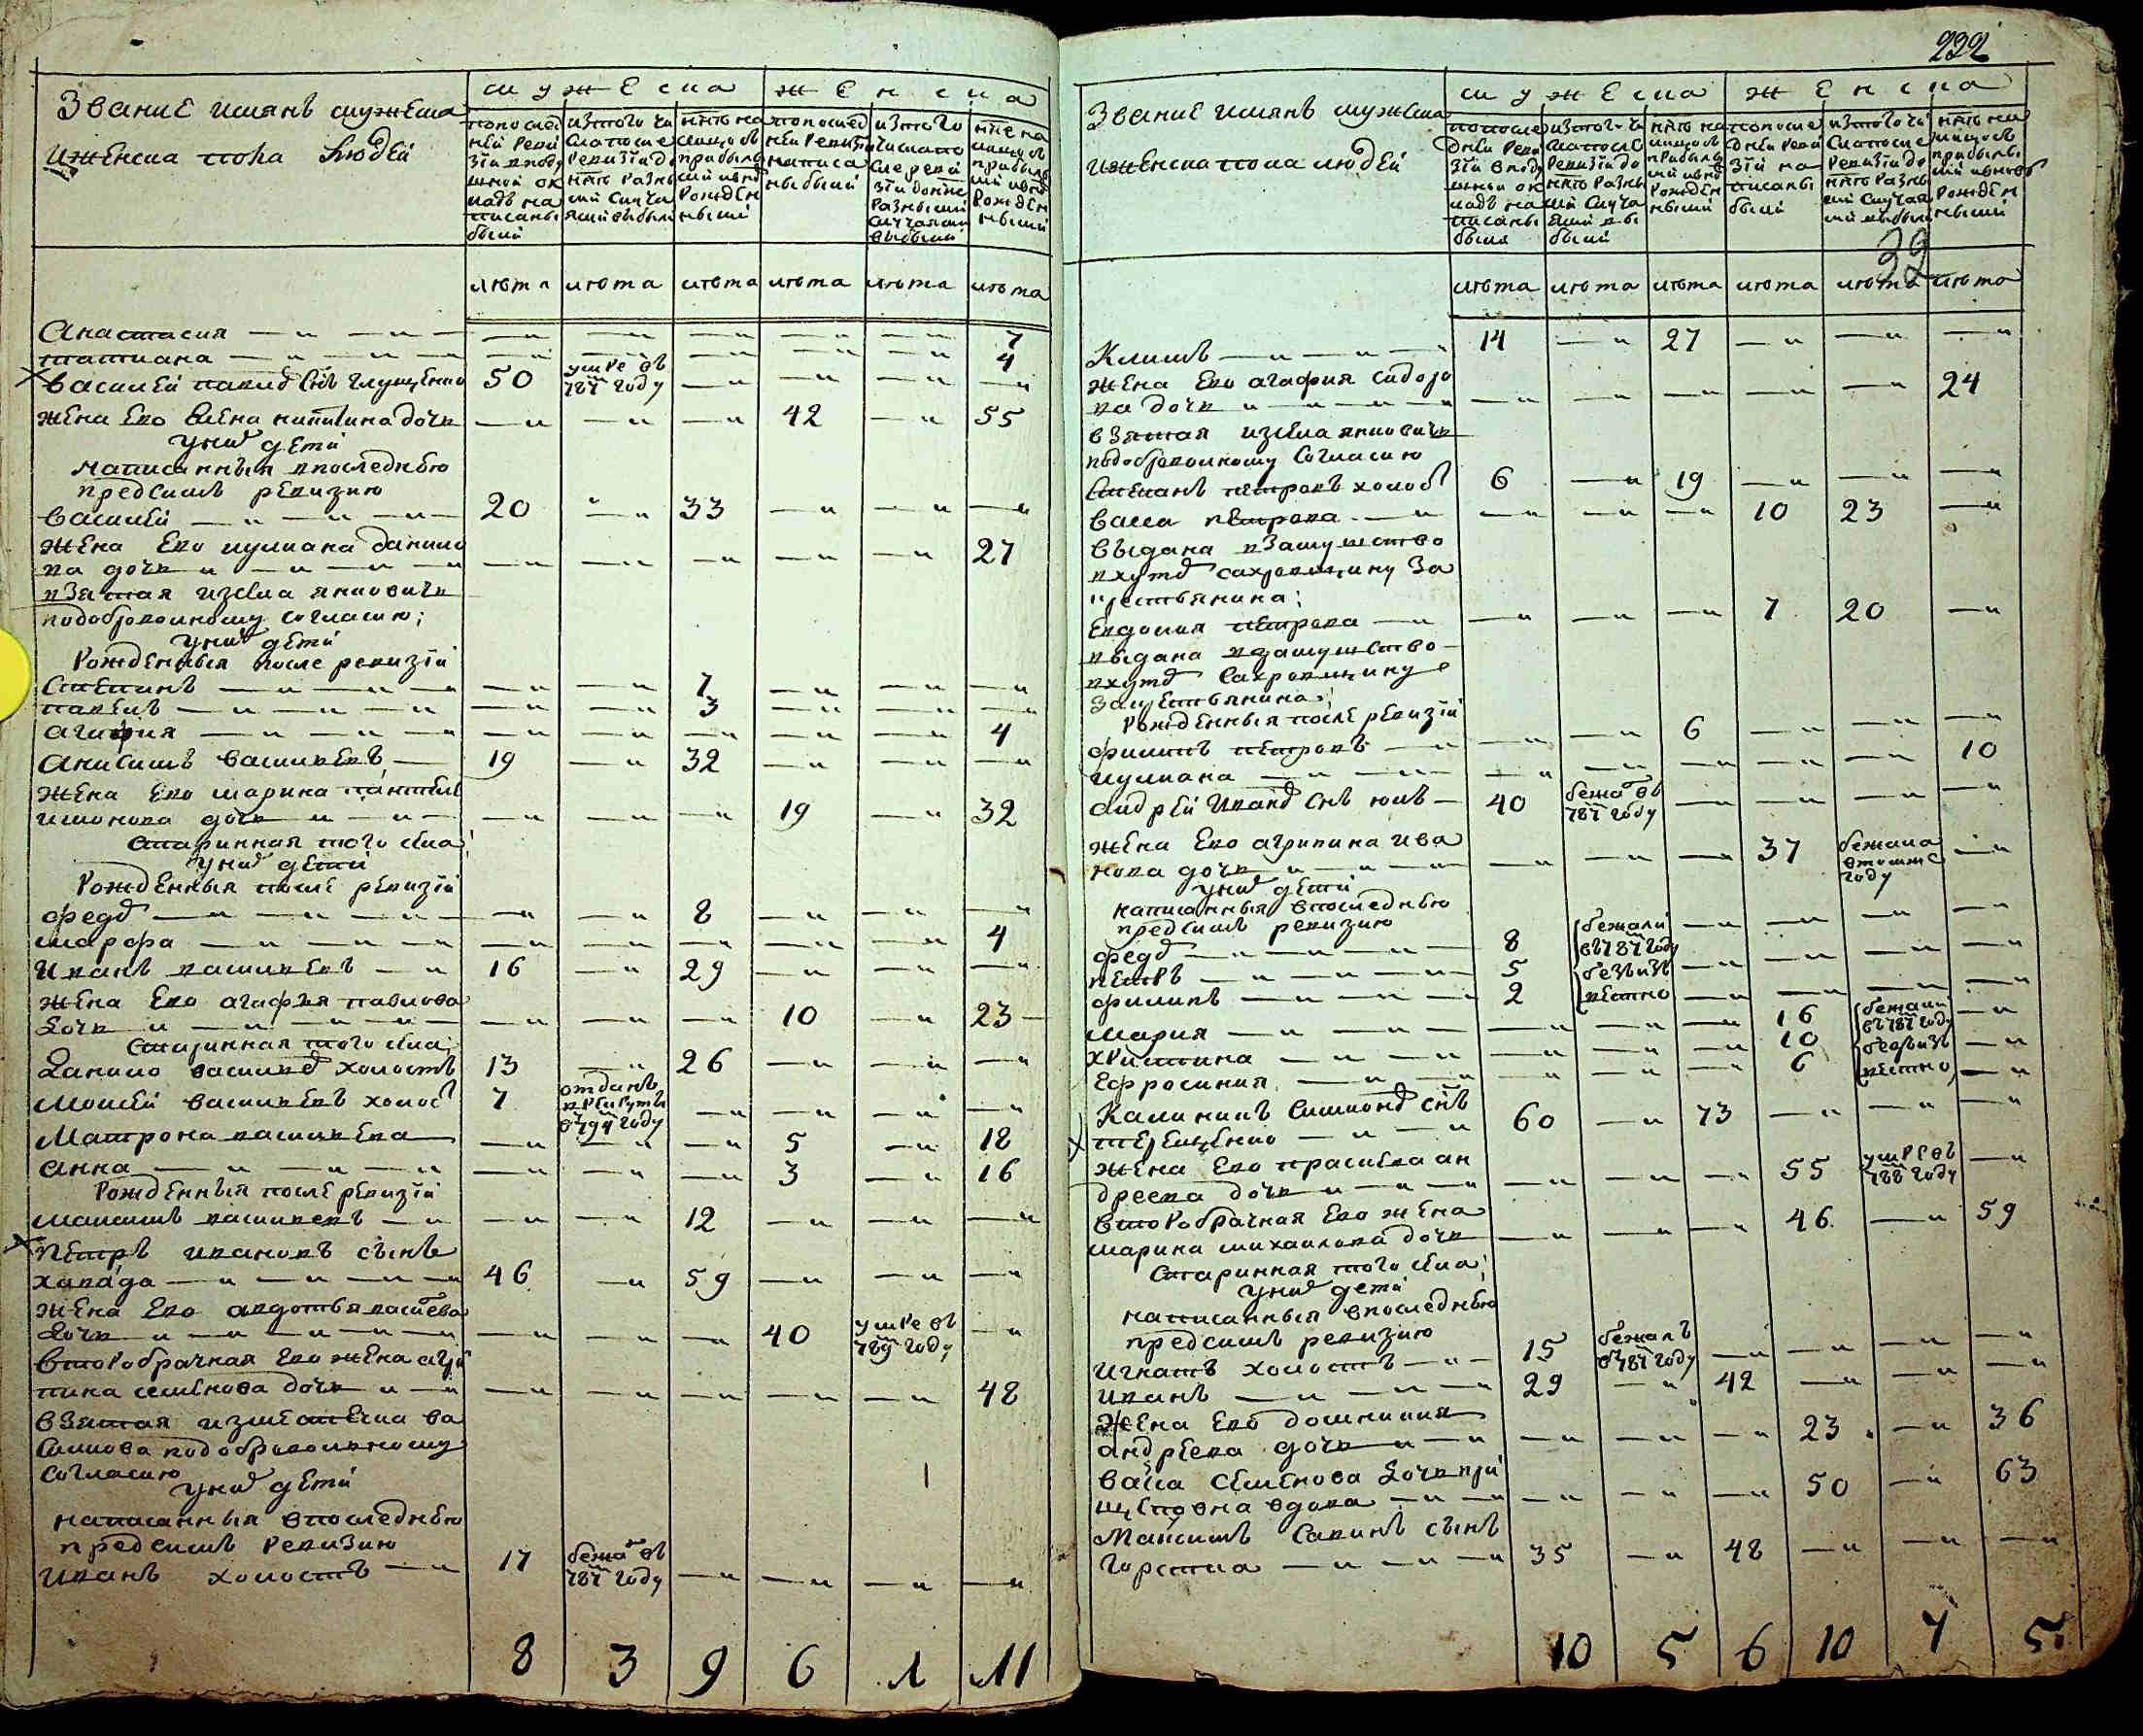 Званиє имянъ мужеска
иженска пола людей
мужеска
женска
попослѣдней ревизіи вподушной окладъ написаны были
изтого числа послѣ ревизіи до нынѣ разными случаями выбыли
нынѣ на лицо съ прибылыми и вновь рожденными
попослѣдней ревизіи написаны были
изтого числа послѣ ревизіи донынѣ разными случаями выбыли
нынѣ на лицо съ прибылыми и вновь рожденными
лѣта лѣта лѣта лѣта лѣта лѣта
Анастасия 7
татиана 4
Василей павловъ снъ глущенко 50 умре въ 787м году
жена Его Елена никитина дочь 42 55
унихъ дети
написанныя впоследнюю
предсимъ ревизию
Василей 20 33
жена Его улиана данило
ва дочь 27
взятая изсела янковичь
подобровольному согласию;
унихъ дети
Рожденныя после ревизіи
Степанъ 7
павелъ 3
агафия 4
Анисимъ васильевъ 19 32
жена Его марина пантели
имонова дочь 19 32
Старинная того села;
унихъ дети
Рожденныя после ревизіи
федоръ 8
марфа 4
Иванъ васильевъ 16 29
жена Его агафья павлова
дочь 10 23
Старинная того села;
Данило васильевъ холостъ 13 26
Моисей васильевъ холостъ 7 отданъ врекруты в 794м году
Матрона васильева 5 18
анна 3 16
Рожденныя после ревизіи
Максимъ васильевъ 12
петръ ивановъ сынъ
46 59
жена Его авдотья
дочь 40 умре въ 789м году
второбрачная Его жена агри
пина семенова дочь 48
взятая
подобровольному
Согласию
унихъ дети
написанныя впоследнюю
предсимъ ревизию
Иванъ холостъ 17 бежалъ въ 787м году
8 3 9 6 1 11
232
Званиє имянъ мужеска
иженска пола людей
мужеска
женска
попоследней ревизіи вподушной окладъ написаны были
изтого числа после ревизіи до нынѣ разными случаями выбыли
нынѣ на лицо съ прибылыми и вновь рожденными
попоследней ревизіи написаны были
изтого числа после ревизіи до нынѣ разными случаями выбыли
нынѣ на лицо съ прибылыми и вновь рожденными
39
лѣта лѣта лѣта лѣта лѣта лѣта
Климъ 14 27
жена Его агафия сидоро
ва дочь 24
взятая изсела янковичь
подобровольному согласию
Степанъ петровъ холостъ 6 19
васса петрова 10 23
выдана взамужство
вхуторъ сахновщину за
крестьянина;
Евдокия петрова 7 20
выдана взамужство
вхуторъ Сахновщину
закрестьянина;
Рожденныя после ревизіи
филипъ петровъ 6
улиана 10
Андрей Ивановъ снъ 40 бежалъ въ 787м году
жена Его агрипина ива
нова дочь 37 бежала втомже году
унихъ дети
написанныя впоследнюю
предсимъ ревизию
федоръ 8 бежали
петръ 5 въ 787м году
филипъ 2 безъизвестно
мария 16 бежали
христина 10 въ 787м году
Ефросиния 6 безъизвестно
Калиникъ Симоновъ снъ
терещенко 60 73
жена Его прасковья ан
дреева дочь 55 умре въ 788м году
второбрачная Его жена
марина михайлова дочь 46 59
Старинная того села;
унихъ дети
написанныя впоследнюю
предсимъ ревизию
Игнатъ холостъ 15 бежалъ в 787м году
Иванъ 29 42
жена Его домникия
андреева дочь 23 36
васса семенова дочь
вдова 50 63
Максимъ Савинъ сынъ
35 48
10 5 6 10 7 5